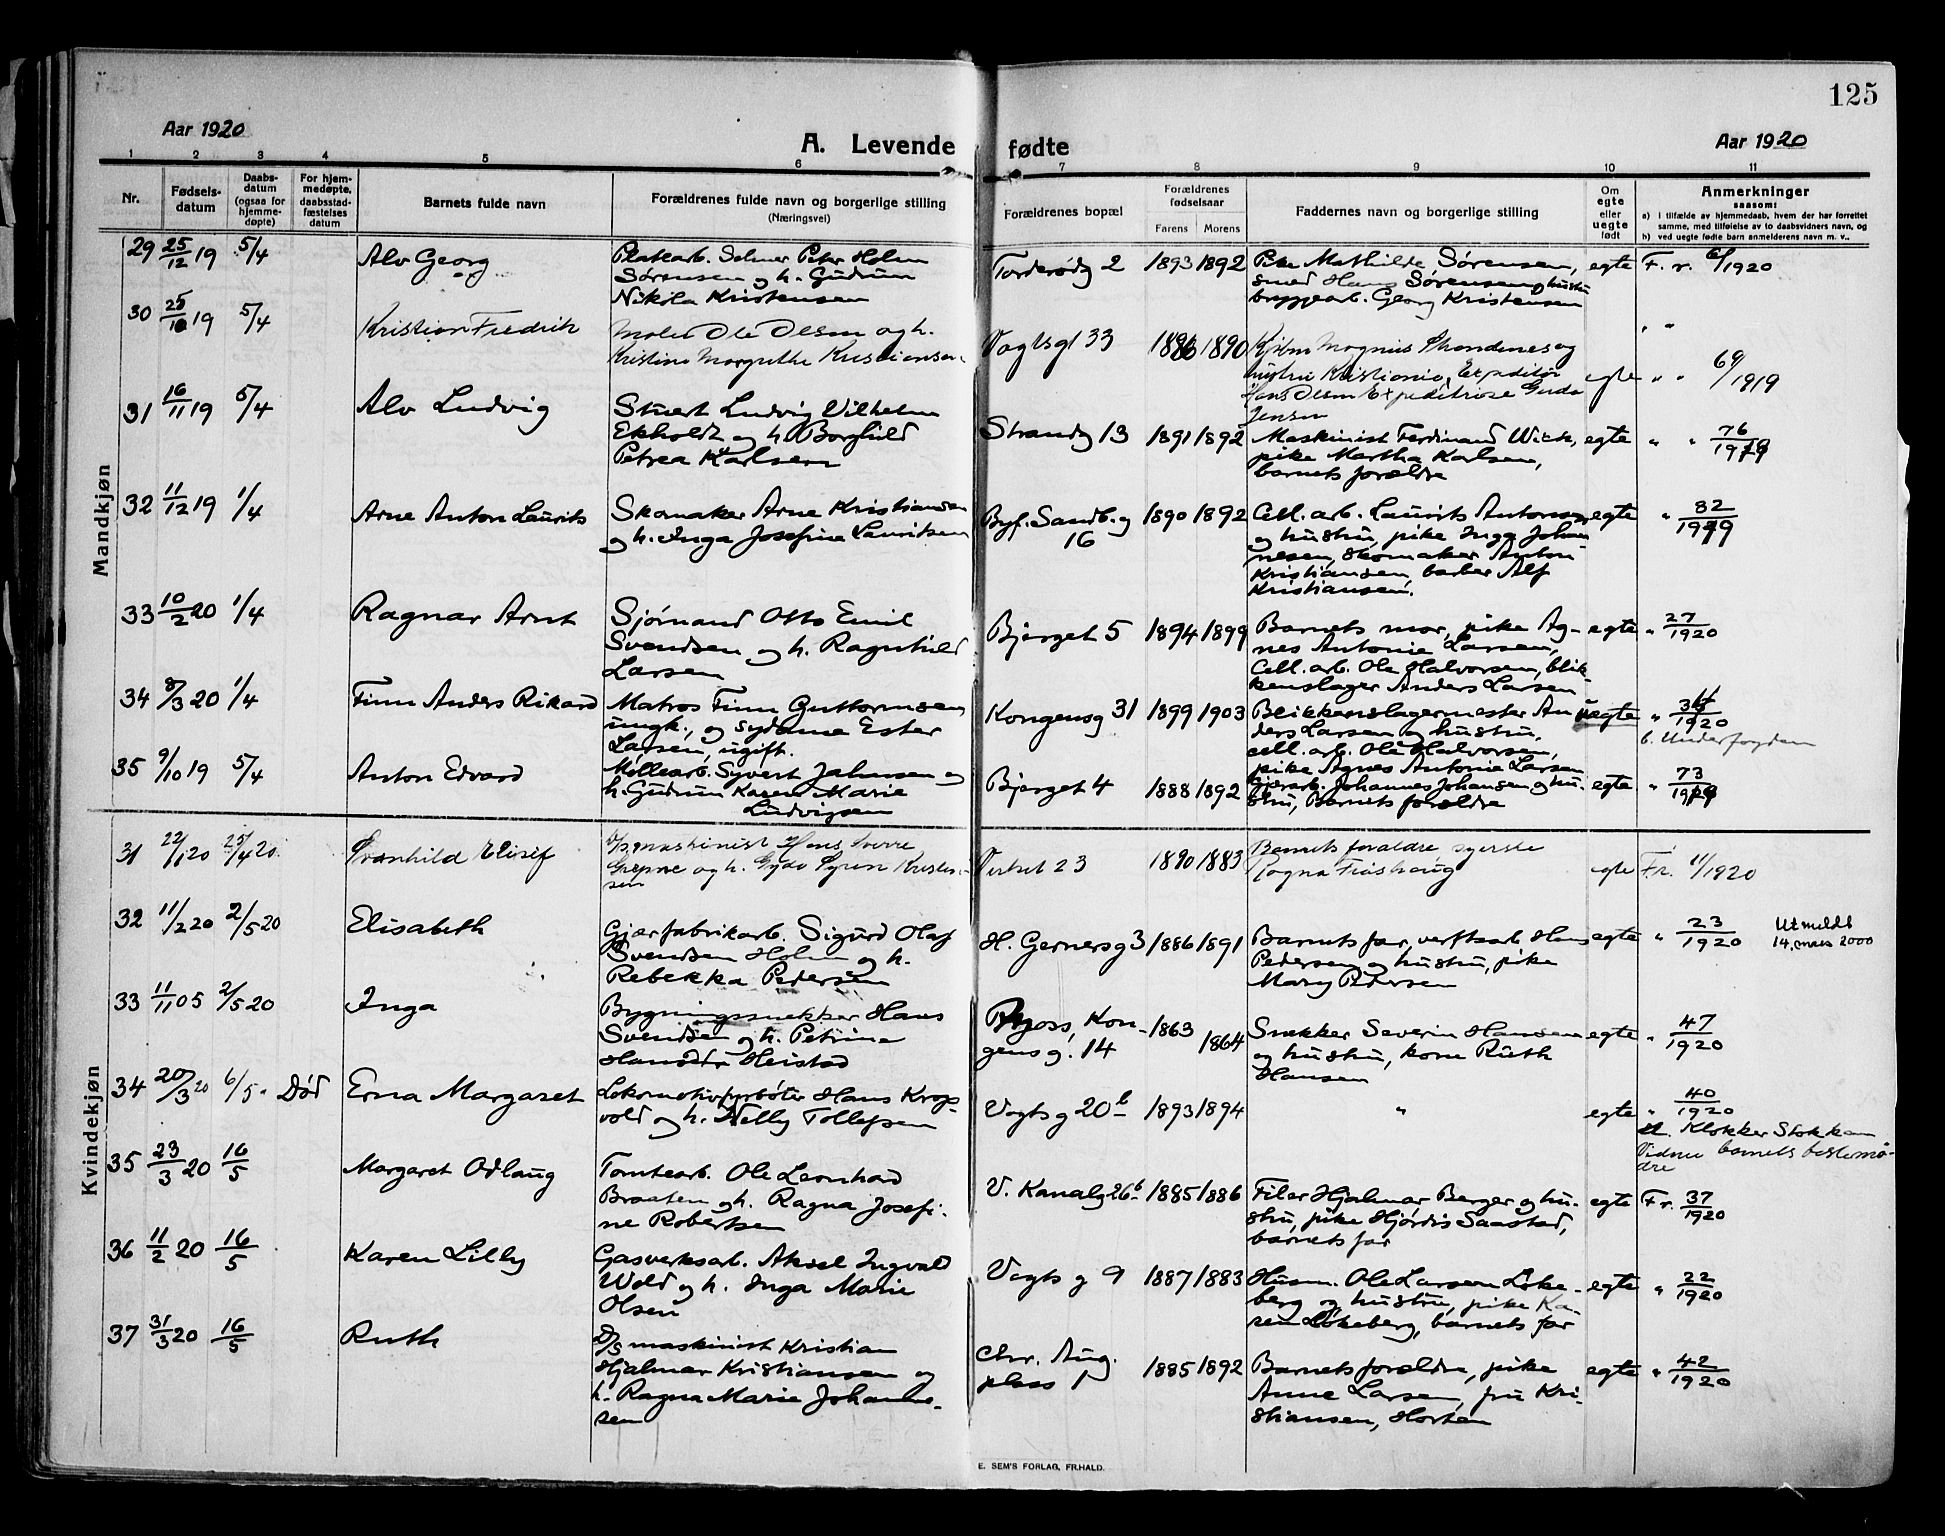 125
Aar 1920
A. Levende fødte
Aar 1920
1 2 3 4 5 6 7 8 9 10 11
Nr.
Fødsels-
datum
Daabs-
datum
(ogsaa for
hjemme-
døpte)
For hjem-
medøpte,
daabsstad-
fæstelses
datum
Barnets fulde navn
Forældrenes fulde navn og borgerlige stilling
(Næringsvei)
Forældrenes bopæl
Forældrenes
fødselsaar
Farens Morens
Faddernes navn og borgerlige stilling
Om
egte
eller
uegte
født
Anmerkninger
saasom:
a) i tilfælde av hjemmedaab, hvem der har forrettet
samme, med tilføielse av to daabsvidners navn, og
b) ved uegte fødte barn anmelderens navn m. v..
Mandkjøn
29 25/12 19 5/4 Alv Georg
Platearb. Selmer Peter Holm
Sørensen og h. Gudrun
Nikola Kristensen
Torderødg 2 1893 1892
Pike Mathilde Sørensen,
smed Hans Sørensen og hustru
bryggearb. Georg Kristensen
egte F. r. 6/1920
30 25/10 19 5/4 Kristian Fredrik
Maler Ole Olsen og h.
Kristine Margrethe Kristiansen
Vogtsg 33 1886 1890
Magnus
hustru Kristiania, Expeditør
Hans Olsen Expeditrise
Jensen
egte " " 69/1919
31 16/11 19 5/4 Alv Ludvig
Stuert Ludvig Vilhelm
Ekholdt og h. Borghild
Petrea Karlsen
Strandg 13 1891 1892
Maskinist Ferdinand
pike Martha Karlsen,
barnets forældre
egte " " 76/1919
32 11/12 19 1/4 Arne Anton Laurits
Skomaker Arne Kristiansen
og h. Inga Josefine Lauritsen
Byf. Sandb.g
16
1890 1892
Cell. arb. Laurits Antonsen
og hustru, pike Inga Johan-
nesen, skomaker Anton
Kristiansen, barber Alf
Kristiansen.
egte " 82/1919
33 10/2 20 1/4 Ragnar Arnt
Sjømand Otto Emil
Svendsen og h. Ragnhild
Larsen
Bjerget 5 1894 1899
Barnets mor, pike Ag-
nes Antonie Larsen,
Cell. arb. Ole Halvorsen, blik-
kenslager Anders Larsen
egte " 27/1920
34 8/3 20 1/4 Finn Anders Rikard
Matros Finn Guttormsen
ungk., og sydame Ester
Larsen, ugift.
Kongensg 31 1899 1903
Blikkenslagermester An-
ders Larsen og hustru,
cell. arb. Ole Halvorsen,
pike Agnes Antonie Larsen
uegte " 34/1920
b. Underfogden
35 9/10 19 5/4 Anton Edvard
Møllearb. Syvert Jahnsen og
h. Gudrun Karen Marie
Ludvigsen
Bjerget 4 1888 1892
Gjærarb. Johannes Johansen og hu-
stru, Barnets forældre
egte " 73/1919
Kvindekjøn
31 22/1 20 25/4 20. Svanhild Elisif
D/s maskinist Hans Sverre
Grepne og h. Gyda Syren Kristen-
sen
Verket 23 1890 1883
Barnets forældre syerske
Ragna Frishaug
egte Fr. 11/1920
32 11/2 20 2/5 20 Elisabeth
Gjærfabrikarb. Sigurd Olaf
Svendsen Holm og h.
Rebekka Pedersen
H. Gernersg 3 1886 1891
Barnets far, verftsarb. Hans
Pedersen og hustru, pike
Mary Pedersen
egte " 23/1920
Utmeldt
14, mars 2000
33 11/11 05 2/5 20 Inga
Bygningssnekker Hans
Svendsen og h. Petrine
Hansdtr Heistad
Kon-
gensg. 14
1863 1864
Snekker Severin Hansen
og hustru, kone Ruth
Hansen
egte " 47/1920
34 20/3 20 6/5 Død Erna Margaret
Lokomotivfyrbøter Hans Krog-
vold og h. Nelly Tollefsen
Vogts g 20 b 1893 1894
"
egte " 40/1920
a. Klokker Stokken
Vidner barnets bestemø-
dre
35 23/3 20 16/5 Margaret Odlaug
Tomtearb. Ole Leonhard
Braaten og h. Ragna Josefi-
ne Robertsen
V. Kanalg 26 b 1885 1886
Filer Hjalmar Berger og hu-
stru, pike Hjørdis Saastad,
barnets far
egte Fr. 37/1920
36 11/2 20 16/5 Karen Lilly
Gasverksarb. Aksel Ingvald
Wold og h. Inga Marie
Olsen
Vogts g 9 1887 1883
Husm. Ole Larsen Løke-
berg og hustru, pike Ka-
ren Løkeberg, barnets far
egte " 22/1920
37 31/3 20 16/5 Ruth
D/s maskinist Kristian
Hjalmar Kristiansen og
h. Ragna Marie Johannes-
sen
Chr. Aug.
plass 1
1885 1892
Barnets forældre, pike
Anne Larsen, fru Kri-
stiansen, Horten
egte " 42/1920
E. SEM'S FORLAG, FR.HALD.